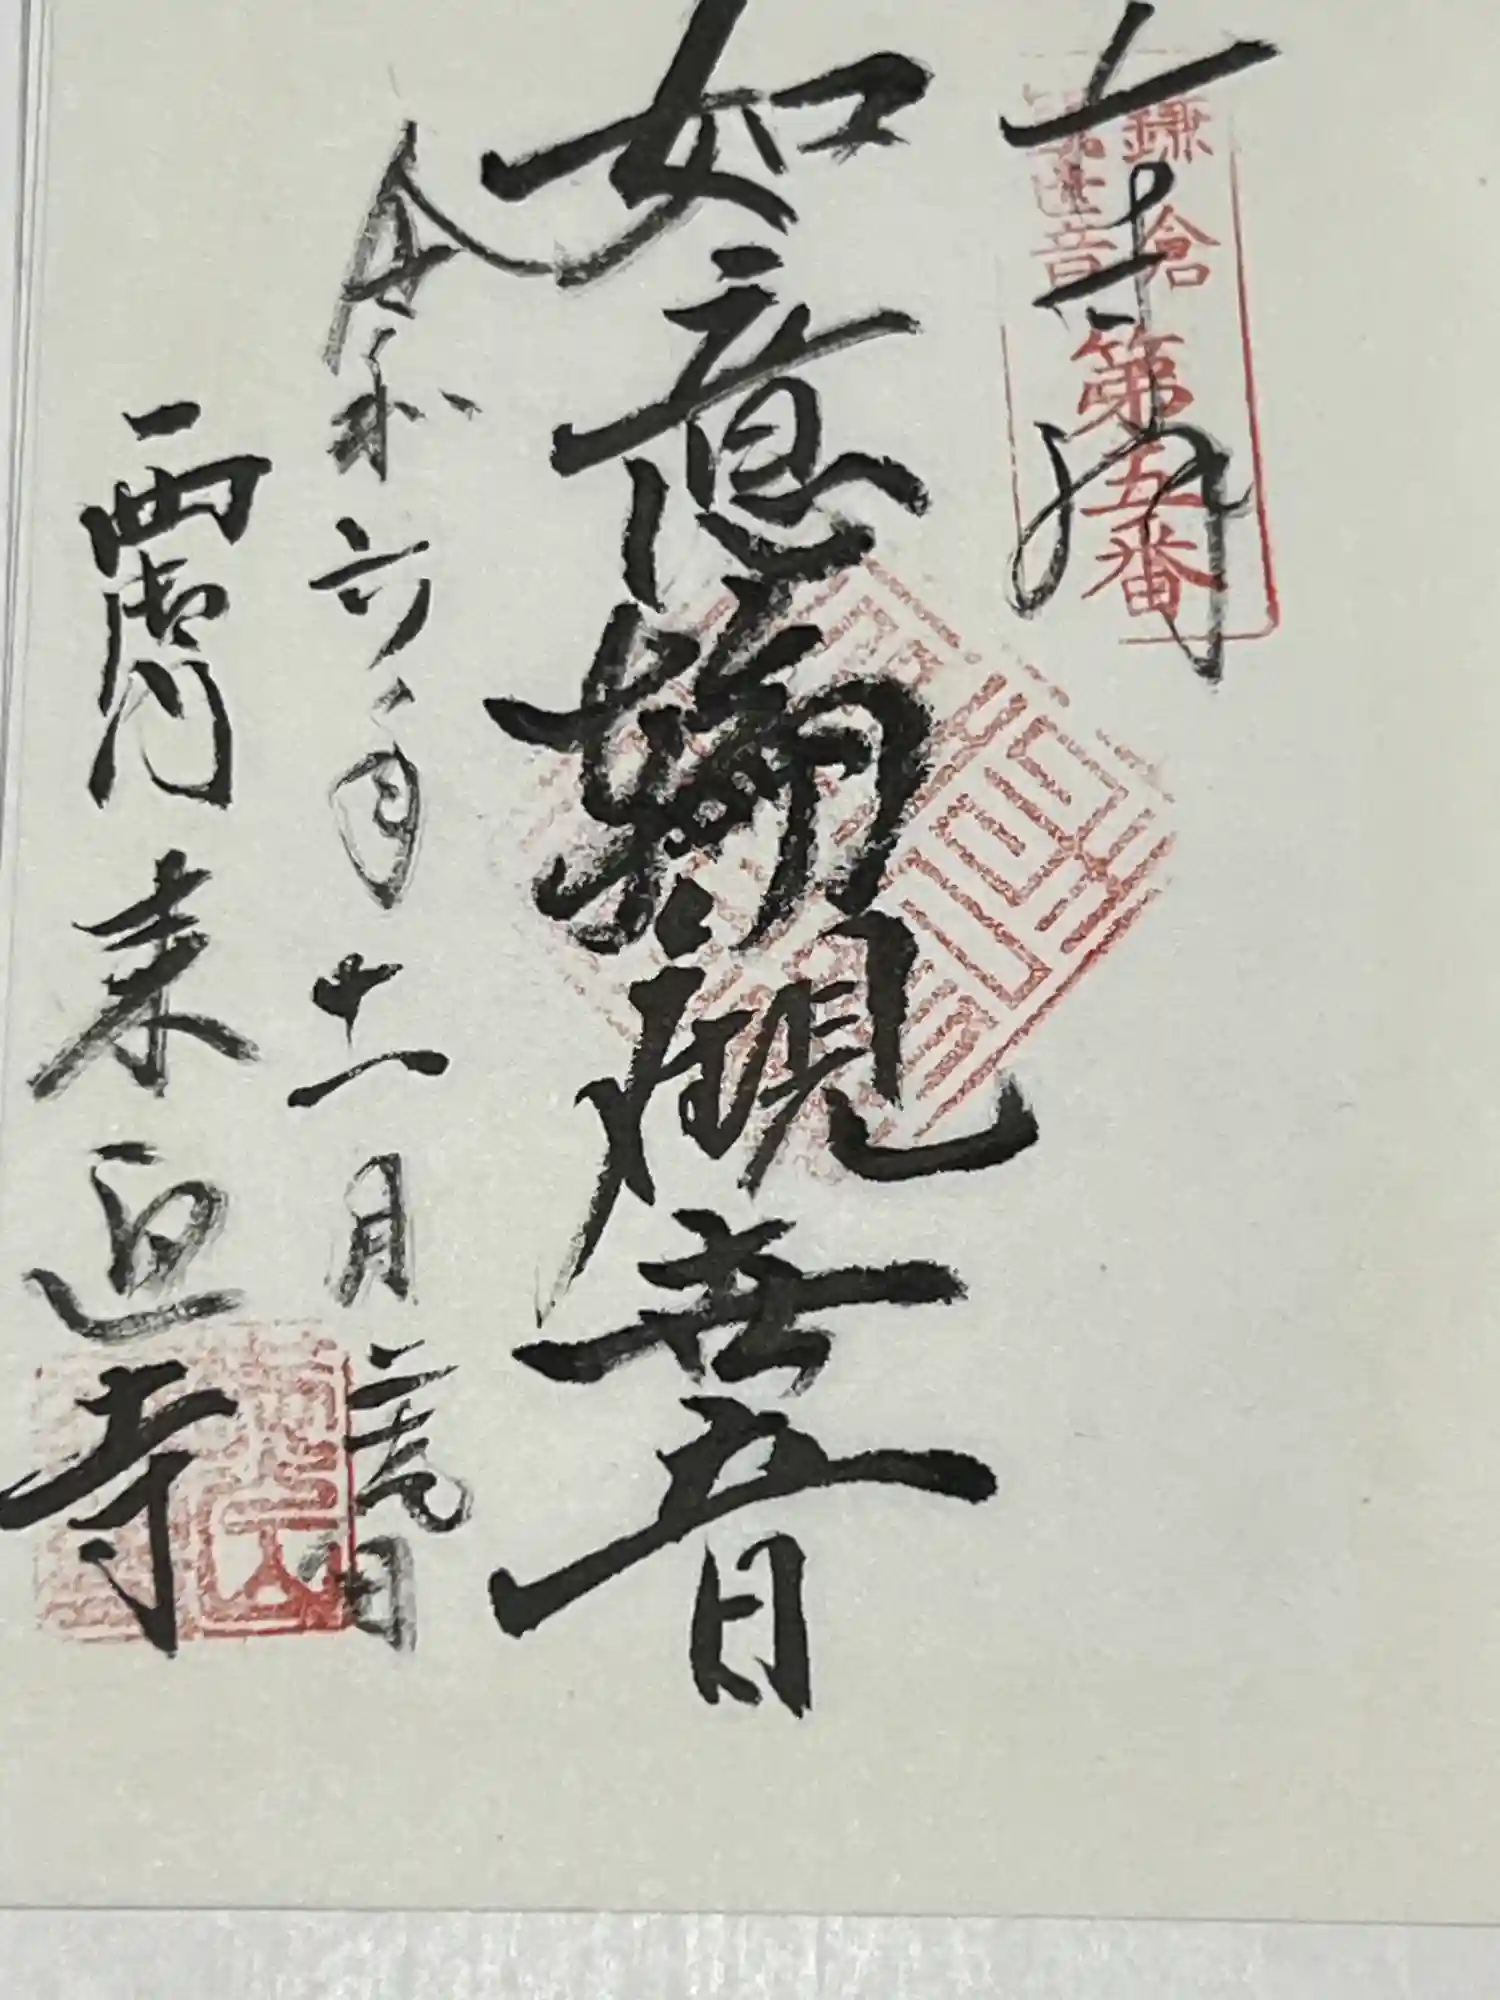 奉拝
鎌倉
観世音
第五番
如意輪観世音
令和六年十一月二十九日
西御門来迎寺